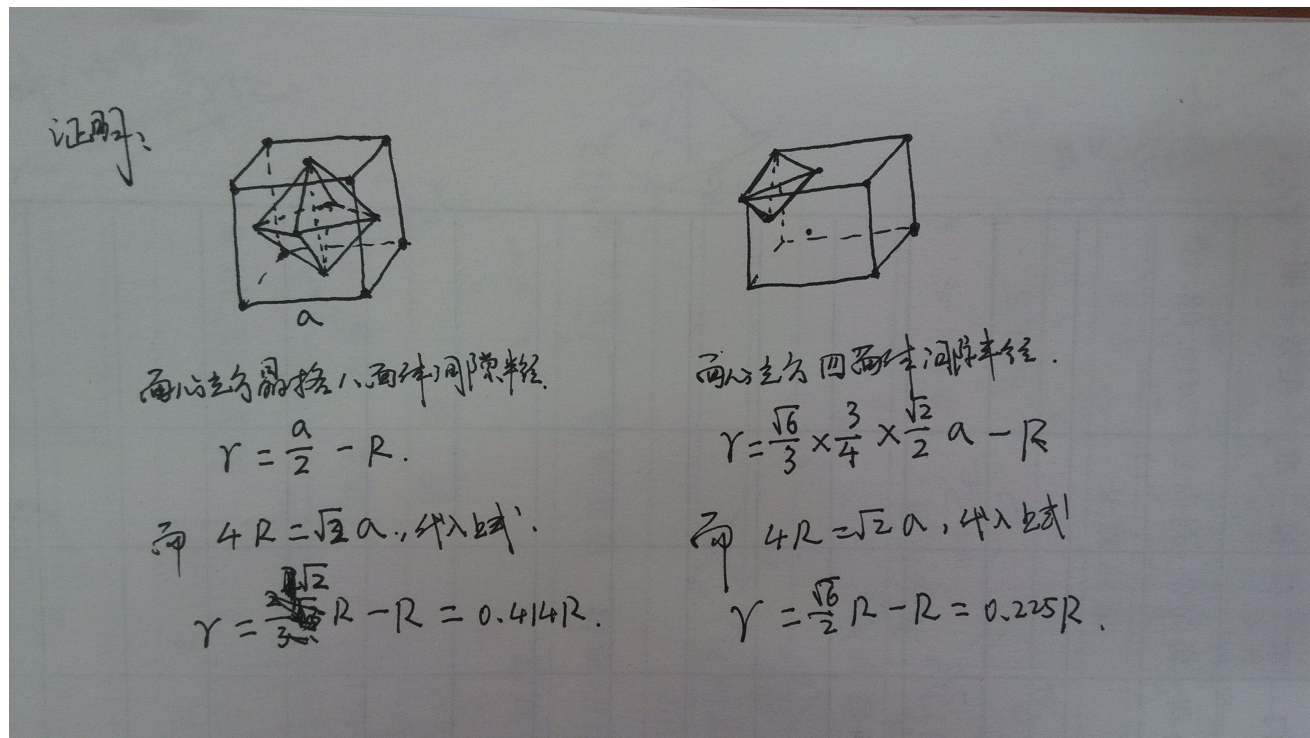 证明:
a
面心立方晶格八面体间隙半径.
r = a/2 - R.
而 4R = √2 a., 代入上式.
r = √2 R - R = 0.414R.
面心立方四面体间隙半径.
r = √6/3 × 3/4 × √2/2 a - R
而 4R = √2 a, 代入上式
r = √6/2 R - R = 0.225R.